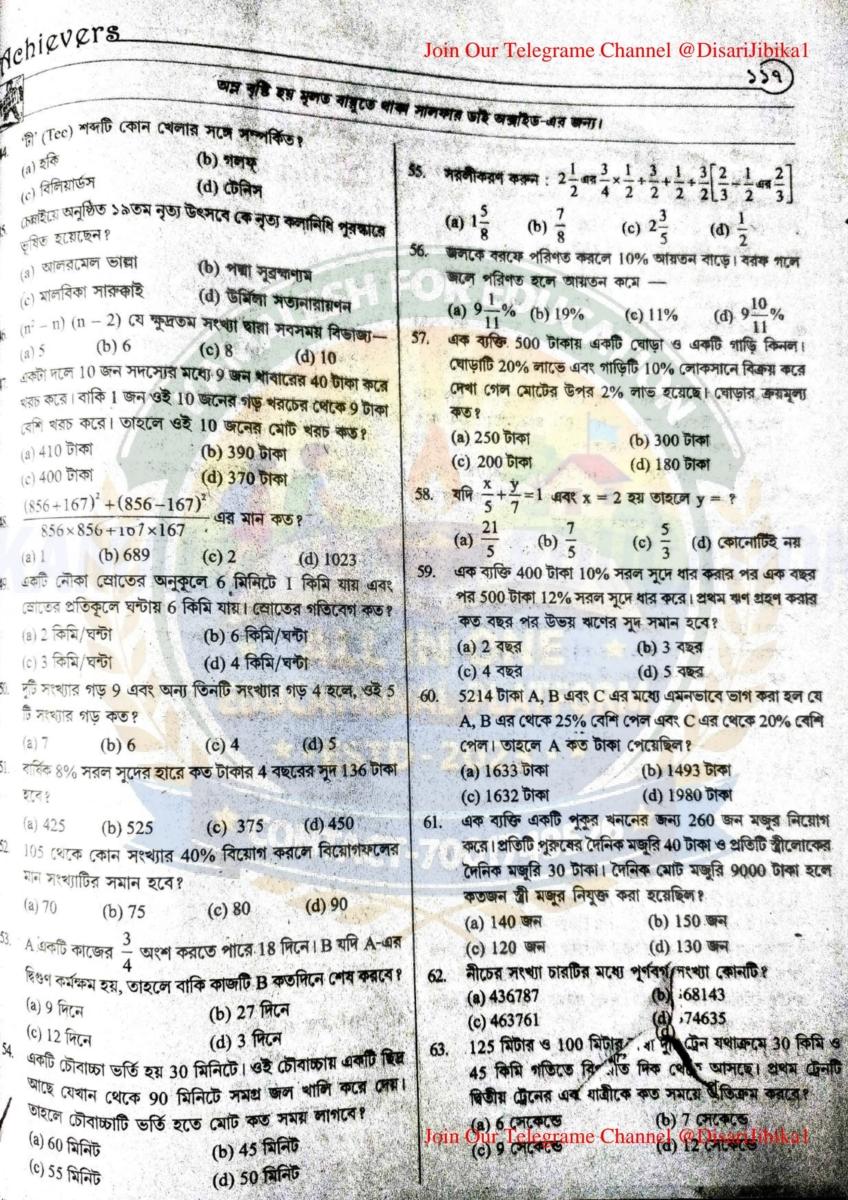 Achievers
Join Our Telegrame Channel @DisariJibika1
১১৭
অম্ল বৃষ্টি হয় মূলত বায়ুতে থাকা সালফার ডাই অক্সাইড-এর জন্য।
'টী' (Tee) শব্দটি কোন খেলার সঙ্গে সম্পর্কিত?
(a) হকি (b) গলফ্
(c) বিলিয়ার্ডস (d) টেনিস
চেন্নাইয়ে অনুষ্ঠিত ১৯তম নৃত্য উৎসবে কে নৃত্য কলানিধি পুরস্কারে
ভূষিত হয়েছেন?
(a) আলরমেল ভাল্লা (b) পদ্মা সুব্রহ্মণ্যম
(c) মালবিকা সারুক্কাই (d) উর্মিলা সত্যনারায়ণন
(n² – n) (n – 2) যে ক্ষুদ্রতম সংখ্যা দ্বারা সবসময় বিভাজ্য—
(a) 5 (b) 6 (c) 8 (d) 10
একটা দলে 10 জন সদস্যের মধ্যে 9 জন খাবারের 40 টাকা করে
খরচ করে। বাকি 1 জন ওই 10 জনের গড় খরচের থেকে 9 টাকা
বেশি খরচ করে। তাহলে ওই 10 জনের মোট খরচ কত?
(a) 410 টাকা (b) 390 টাকা
(c) 400 টাকা (d) 370 টাকা
(856+167)² + (856–167)²
856×856+167×167 এর মান কত?
(a) 1 (b) 689 (c) 2 (d) 1023
একটি নৌকা স্রোতের অনুকূলে 6 মিনিটে 1 কিমি যায় এবং
স্রোতের প্রতিকূলে ঘন্টায় 6 কিমি যায়। স্রোতের গতিবেগ কত?
(a) 2 কিমি/ঘন্টা (b) 6 কিমি/ঘন্টা
(c) 3 কিমি/ঘন্টা (d) 4 কিমি/ঘন্টা
দুটি সংখ্যার গড় 9 এবং অন্য তিনটি সংখ্যার গড় 4 হলে, ওই 5
টি সংখ্যার গড় কত?
(a) 7 (b) 6 (c) 4 (d) 5
বার্ষিক 8% সরল সুদের হারে কত টাকার 4 বছরের সুদ 136 টাকা
হবে?
(a) 425 (b) 525 (c) 375 (d) 450
105 থেকে কোন সংখ্যার 40% বিয়োগ করলে বিয়োগফলের
মান সংখ্যাটির সমান হবে?
(a) 70 (b) 75 (c) 80 (d) 90
53. A একটি কাজের 3/4 অংশ করতে পারে 18 দিনে। B যদি A-এর
দ্বিগুণ কর্মক্ষম হয়, তাহলে বাকি কাজটি B কতদিনে শেষ করবে?
(a) 9 দিনে (b) 27 দিনে
(c) 12 দিনে (d) 3 দিনে
54. একটি চৌবাচ্চা ভর্তি হয় 30 মিনিটে। ওই চৌবাচ্চায় একটি ছিদ্র
আছে যেখান থেকে 90 মিনিটে সমগ্র জল খালি করে দেয়।
তাহলে চৌবাচ্চাটি ভর্তি হতে মোট কত সময় লাগবে?
(a) 60 মিনিট (b) 45 মিনিট
(c) 55 মিনিট (d) 50 মিনিট
55. সরলীকরণ করুন : 2 1/2 এর 3/4 × 1/2 + 3/2 + 1/2 ÷ 3/2 [2/3 – 1/2 এর 2/3]
(a) 1 5/8 (b) 7/8 (c) 2 3/5 (d) 1/2
56. জলকে বরফে পরিণত করলে 10% আয়তন বাড়ে। বরফ গলে
জলে পরিণত হলে আয়তন কমে —
(a) 9 1/11 % (b) 19% (c) 11% (d) 9 10/11 %
57. এক ব্যক্তি 500 টাকায় একটি ঘোড়া ও একটি গাড়ি কিনল।
ঘোড়াটি 20% লাভে এবং গাড়িটি 10% লোকসানে বিক্রয় করে
দেখা গেল মোটের উপর 2% লাভ হয়েছে। ঘোড়ার ক্রয়মূল্য
কত?
(a) 250 টাকা (b) 300 টাকা
(c) 200 টাকা (d) 180 টাকা
58. যদি x/5 + y/7 = 1 এবং x = 2 হয় তাহলে y = ?
(a) 21/5 (b) 7/5 (c) 5/3 (d) কোনোটিই নয়
59. এক ব্যক্তি 400 টাকা 10% সরল সুদে ধার করার পর এক বছর
পর 500 টাকা 12% সরল সুদে ধার করে। প্রথম ঋণ গ্রহণ করার
কত বছর পর উভয় ঋণের সুদ সমান হবে?
(a) 2 বছর (b) 3 বছর
(c) 4 বছর (d) 5 বছর
60. 5214 টাকা A, B এবং C এর মধ্যে এমনভাবে ভাগ করা হল যে
A, B এর থেকে 25% বেশি পেল এবং C এর থেকে 20% বেশি
পেল। তাহলে A কত টাকা পেয়েছিল?
(a) 1633 টাকা (b) 1493 টাকা
(c) 1632 টাকা (d) 1980 টাকা
61. এক ব্যক্তি একটি পুকুর খননের জন্য 260 জন মজুর নিয়োগ
করে। প্রতিটি পুরুষের দৈনিক মজুরি 40 টাকা ও প্রতিটি স্ত্রীলোকের
দৈনিক মজুরি 30 টাকা। দৈনিক মোট মজুরি 9000 টাকা হলে
কতজন স্ত্রী মজুর নিযুক্ত করা হয়েছিল?
(a) 140 জন (b) 150 জন
(c) 120 জন (d) 130 জন
62. নীচের সংখ্যা চারটির মধ্যে পূর্ণবর্গ সংখ্যা কোনটি?
(a) 436787 (b) 68143
(c) 463761 (d) 74635
63. 125 মিটার ও 100 মিটার ট্রেন যথাক্রমে 30 কিমি ও
45 কিমি গতিতে দিক থেকে আসছে। প্রথম ট্রেনটি
দ্বিতীয় ট্রেনের এক যাত্রীকে কত সময়ে অতিক্রম করবে?
(a) 6 সেকেন্ডে (b) 7 সেকেন্ডে
Join Our Telegrame Channel @DisariJibika1
(c) 9 সেকেন্ডে (d) 12 সেকেন্ডে